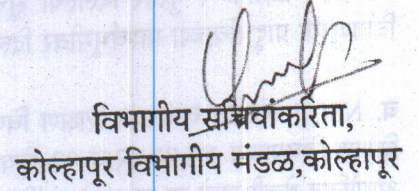 विभागीय सचिवांकरिता,
कोल्हापूर विभागीय मंडळ,कोल्हापूर